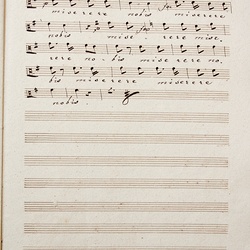 nobis miserere
nobis mise. rere mise.
rere no-bis miserere no,
bis miserere miserere
nobis.